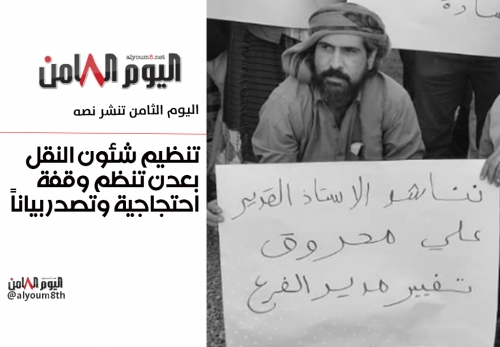 اليوم الثامن
alyoum8.net
اليوم الثامن تنشر نصه
تنظيم شئون النقل
بعدن تنظم وقفة
احتجاجية وتصدر بياناً
اليوم الثامن
@alyoum8th
نناشد الاستاذ القدير
علي محروق
تغيير مدير الفرع